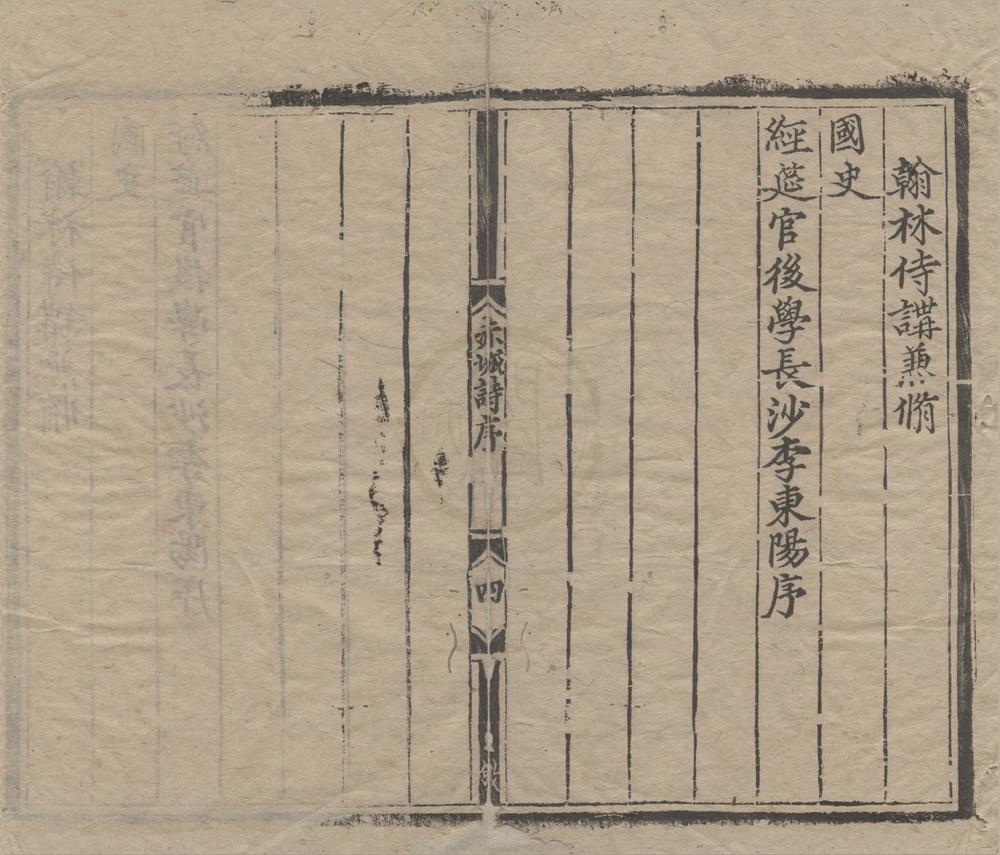 翰林侍講兼脩
國史
經莚官後學長沙李東陽序
赤城詩序
四